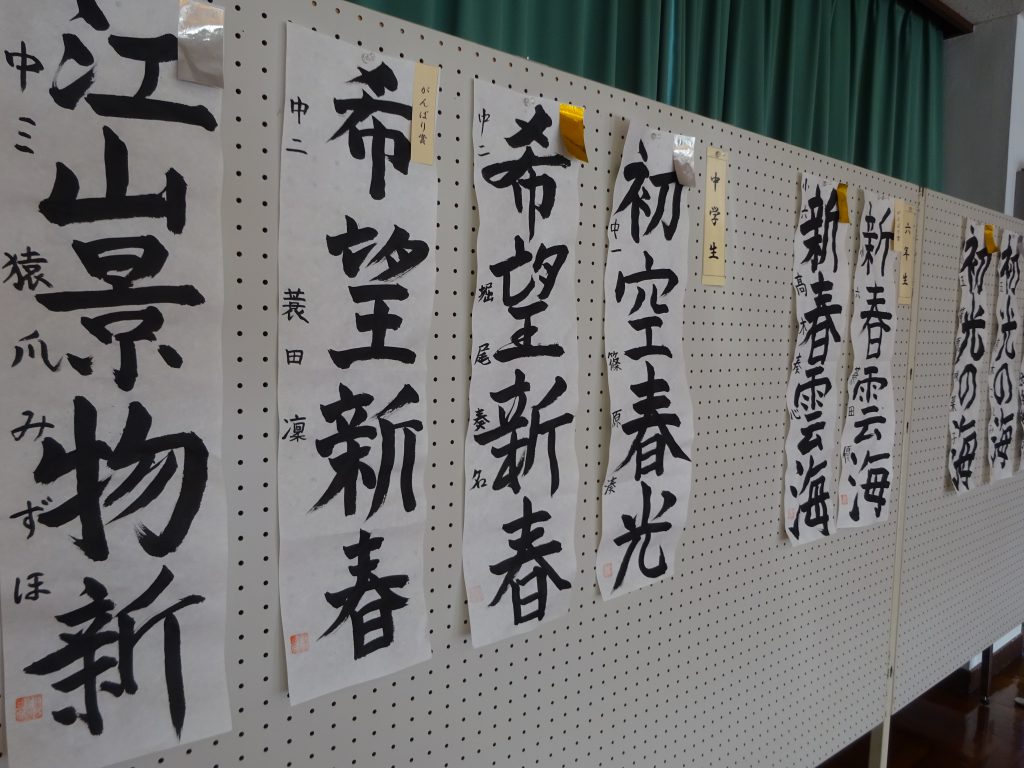 江山景物新
中三 猿爪みずほ
がんばり賞
希望新春
中二 蓑田 凜
希望新春
中二 堀尾奏名
初空春光
中一 篠原湊
中学生
新春雲海
小六 高木
新春雲海
六年生
初光の海
初光の海